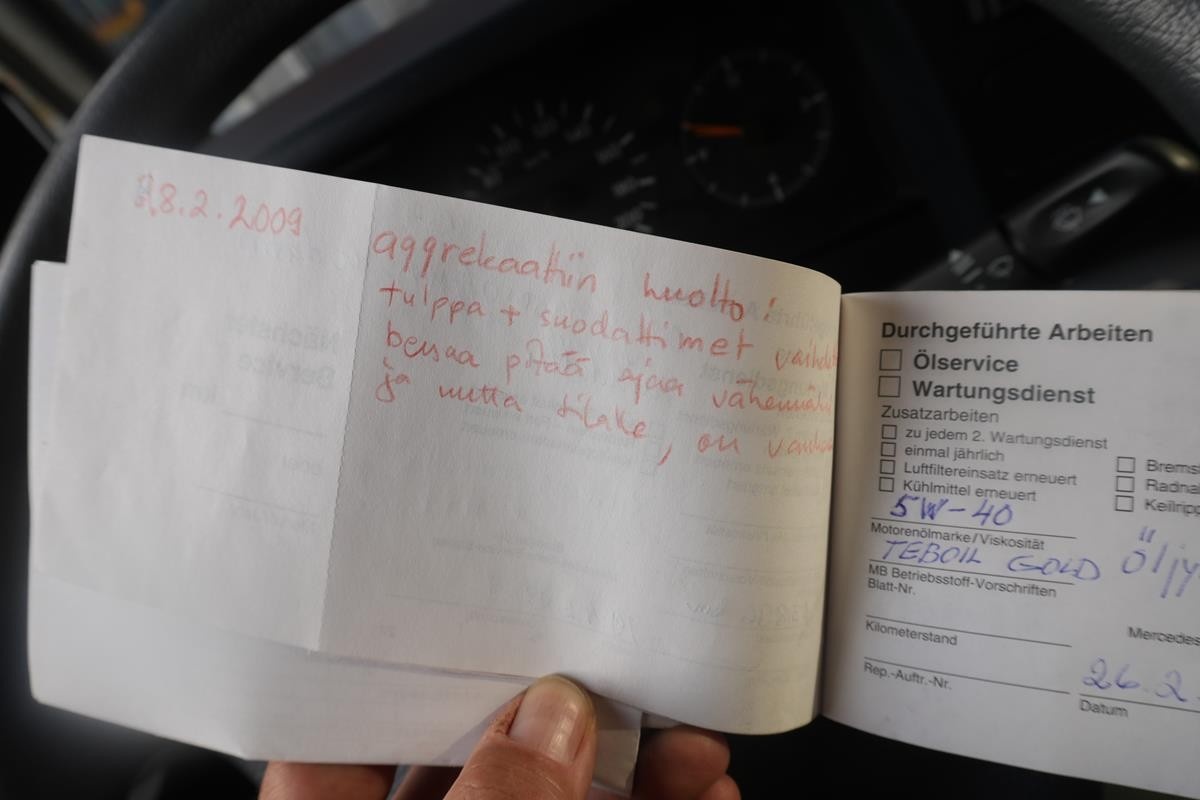 8.2.2009
aggrekaattiin huolto:
tulppa + suodattimet
bensaa pitää ajaa
ja uutta tilalle, on
Durchgeführte Arbeiten
Ölservice
Wartungsdienst
Zusatzarbeiten
zu jedem 2. Wartungsdienst
einmal jährlich
Luftfiltereinsatz erneuert
Kühlmittel erneuert
Brems
Radna
Keilripp
5W-40
Motorenölmarke/Viskosität
TEBOIL GOLD Öljy
MB Betriebsstoff-Vorschriften
Blatt-Nr.
Kilometerstand
Mercedes
Rep.-Auftr.-Nr.
26.2
Datum
Nächster
Service
km